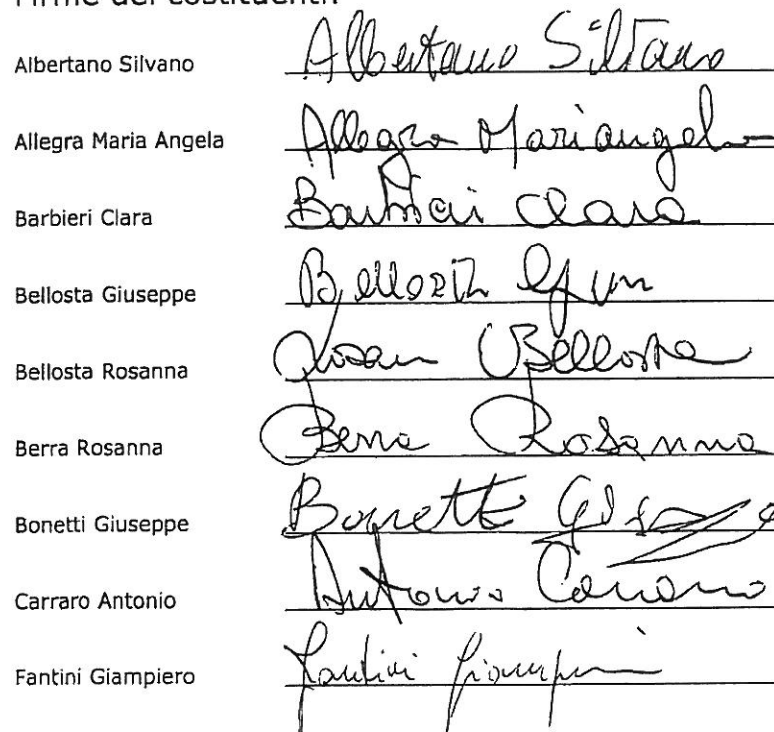 Firme dei costituenti:
Albertano Silvano Albertano Silvano
Allegra Maria Angela Allegra Mariangela
Barbieri Clara Barbieri Clara
Bellosta Giuseppe Bellosta
Bellosta Rosanna Rosanna Bellosta
Berra Rosanna Berra Rosanna
Bonetti Giuseppe Bonetti
Carraro Antonio Antonio Carraro
Fantini Giampiero Fantini Giampiero